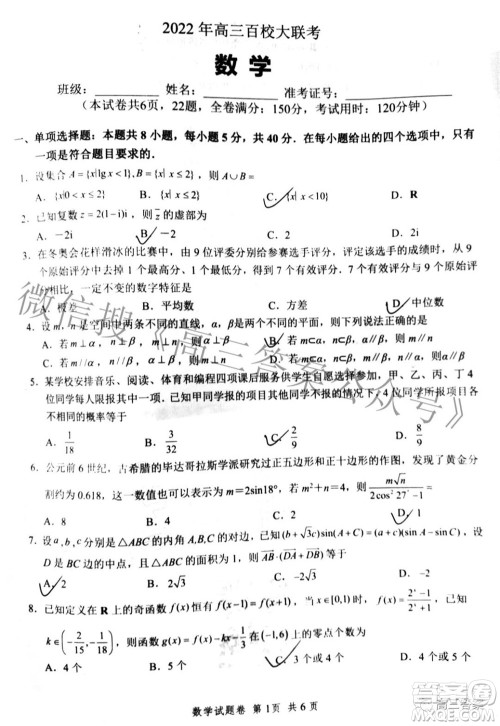 2022年高三百校大联考
数学
班级：________ 姓名：________ 准考证号：________
（本试卷共6页，22题，全卷满分：150分，考试用时：120分钟）
一、单项选择题：本题共 8 小题，每小题 5 分，共 40 分。在每小题给出的四个选项中，只有一项是符合题目要求的．
1．设集合 A={x|lg x<1}，B={x|x<2}，则 A∪B=
A．{x|0<x<2} B．{x|x<2} C．{x|x<10} D．R
2．已知复数 z=2(1−i)i，则 z̄ 的虚部为
A．−2i B．−2 C．2i D．2
3．在冬奥会花样滑冰的比赛中，由 9 位评委分别给参赛选手评分，评定该选手的成绩时，从 9
个原始评分中去掉 1 个最高分、1 个最低分，得到 7 个有效评分．7 个有效评分与 9 个原始
评分相比，一定不变的数字特征是
A．极差 B．平均数 C．方差 D．中位数
4．设 m，n 是空间中两条不同的直线，α，β
A．若 D．若
5．某学校安排音乐、阅读、体育和编程四项课后服务供学生自愿选择参加，甲、乙、丙、丁 4
位同学每人限报其中一项．已知甲同学报的项目其他同学不报的情况下，4 位同学所报项目各
不相同的概率等于
A．1/18 B．3/32 C．2/9 D．8/9
6．公元前 6 世纪，古希腊的毕达哥拉斯学派研究过正五边形和正十边形的作图，发现了黄金分
割约为 0.618，这一数值也可以表示为 m=2sin18°，若 m²+n=4，则 m√n/(2cos²27°−1)=
A．8 B．4 C．2 D．1
7．设 a，b，c 分别为△ABC 的内角 A，B，C 的对边，
A．2 B．2√3 C．4 D．4√3
8．已知定义在 R 上的奇函数 f(x) 恒有 f(x−1)=f(x+1)，当 x∈[0,1) 时，f(x)=(2ˣ−1)/(2ˣ+1)，已知
k∈(−2/15, −1/18)，则函数 g(x)=f(x)−kx−1/3 在 (−1,6) 上的零点个数为
A．4 个 B．5 个 C．3 个或 4 个 D．4 个或 5 个
数学试题卷 第 1 页 共 6 页
微信搜《高三答案公众号》